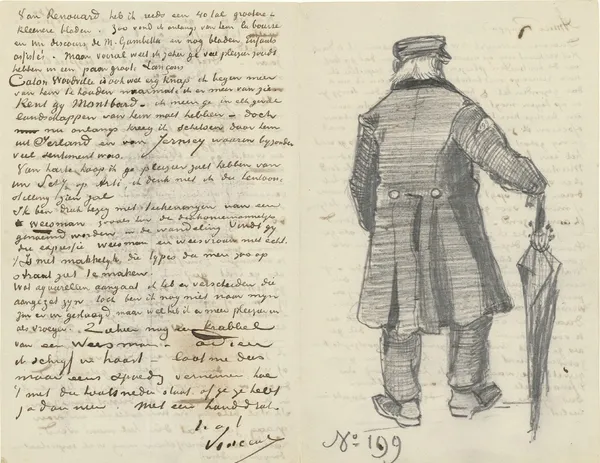 Van Renouard heb ik reeds een 40 tal grootere &
kleinere bladen. Zoo vond ik onlangs van hem la bourse
en un discours de M. Gambetta en nog bladen Enfants
assistés. Maar vooral weet ik zeker ge veel pleizier zoudt
hebben in een paar groote Lançons
Caton Woodville is ook wel erg knap ik begon meer
van hem te houden naarmate ik er meer van zien
Kent gij Montbard – ik meen ge in elk geval
landschappen van hem moet hebben – doch
nu onlangs kreeg ik schetsen door hem
uit Ierland en van Jersey waarin bijzonder
veel sentiment was.
Van harte hoop ik ge pleizier zult hebben van
Uw op Arti, ik denk wel ik die tentoon-
stelling zien zal
Ik ben druk bezig met teekeningen van een
weesman zooals hier de diakoniemannetjes
genoemd worden in de wandeling Vindt gij
die expressie weesman en weesvrouw niet echt.
't Is niet makkelijk die types die men zoo op
straat ziet te maken.
Wat aquarellen aangaat ik heb er verscheiden die
aangezet zijn, toch ben ik nog niet naar mijn
zin er in geslaagd maar wel heb ik er meer pleizier in
als vroeger. Ziehier nog een krabbel
van een weesman – adieu
ik schrijf in haast – laat me dus
maar eens spoedig vernemen hoe
't met die houtsneden staat. of ge ze hebt
ja dan neen. Met een handdruk.
t.à t.
Vincent
No 199